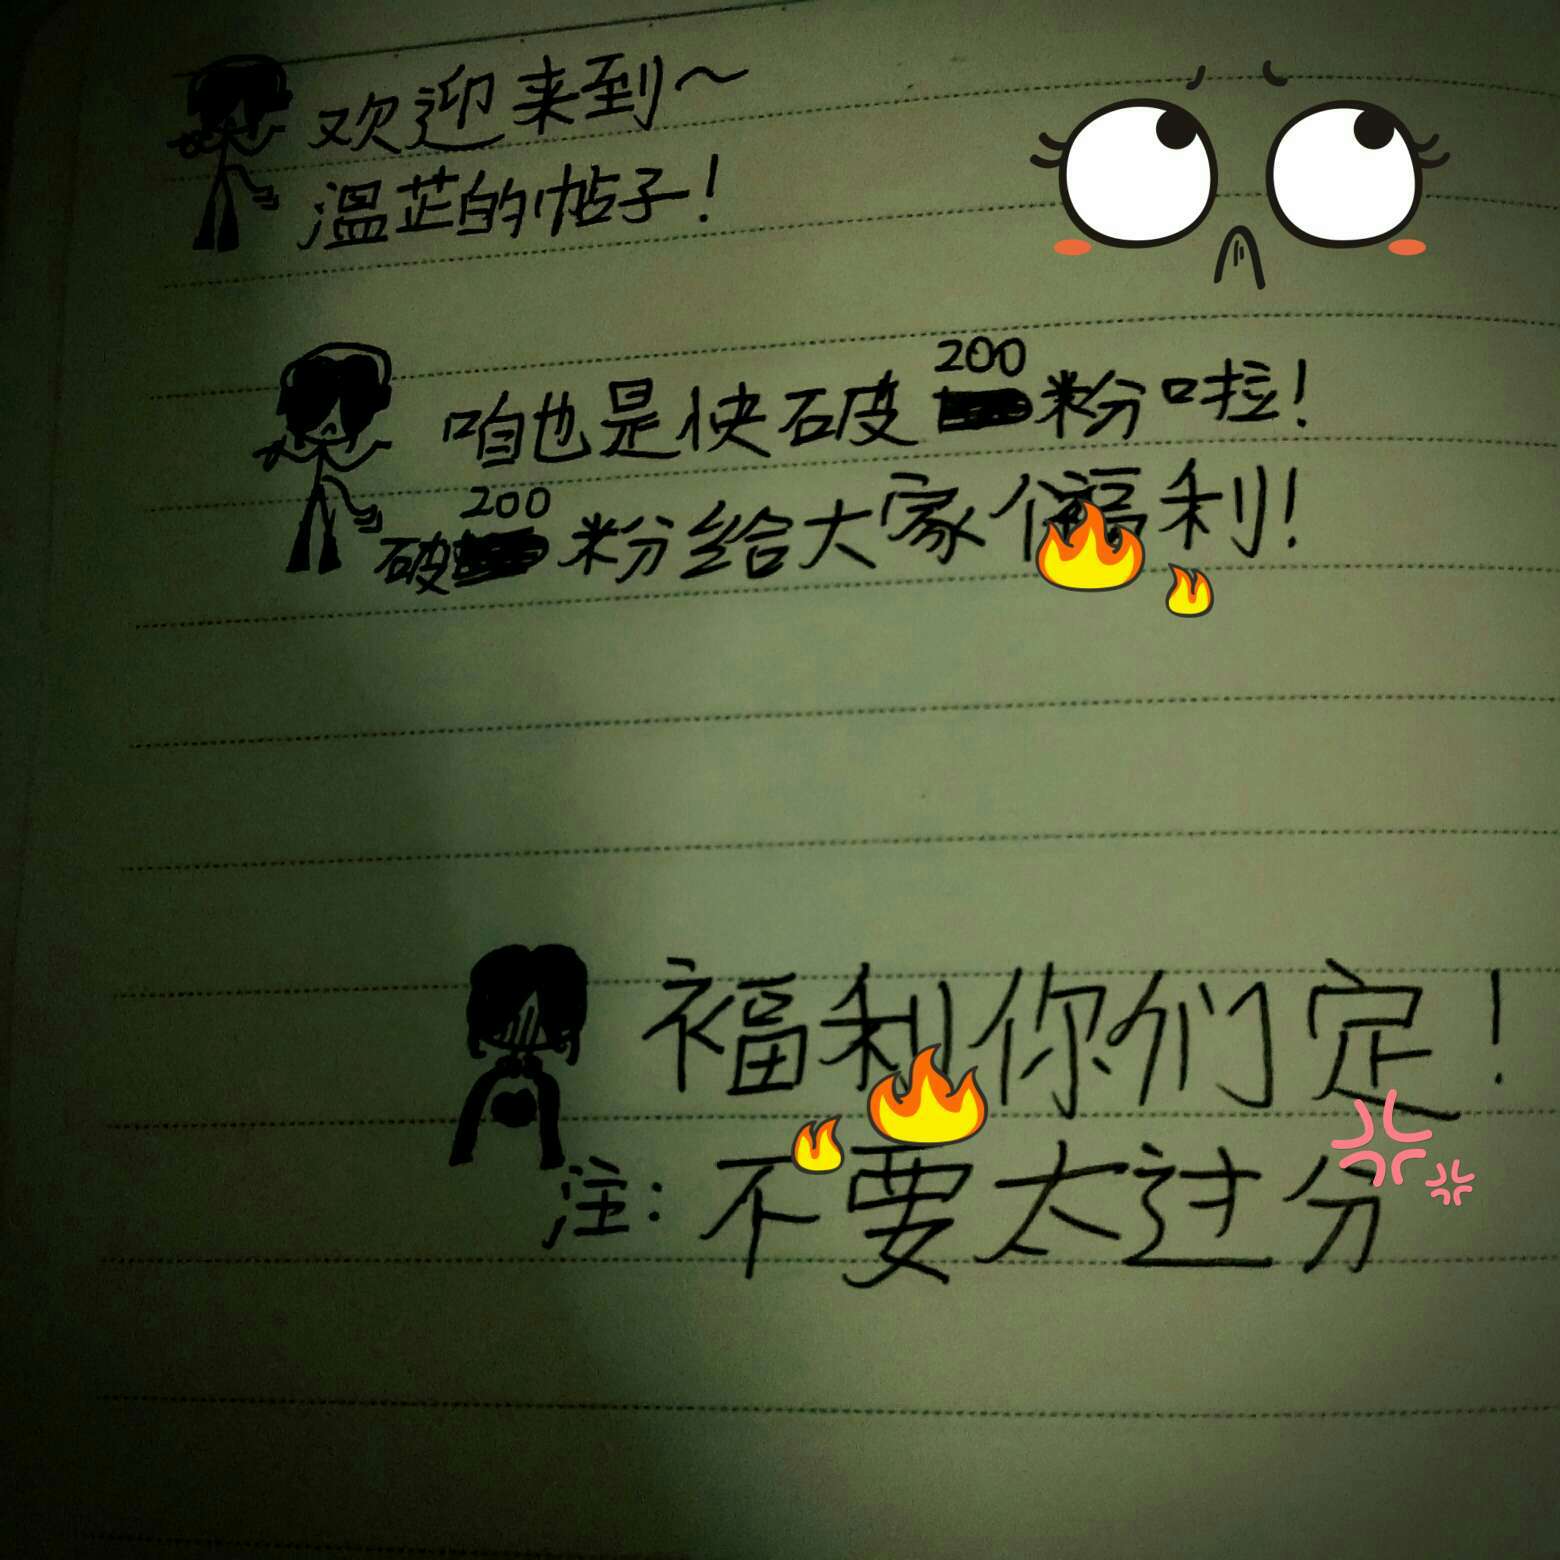 欢迎来到～
温芷的帖子！
咱也是快破200粉啦！
破200粉给大家个福利！
福利你们定！
注：不要太过分